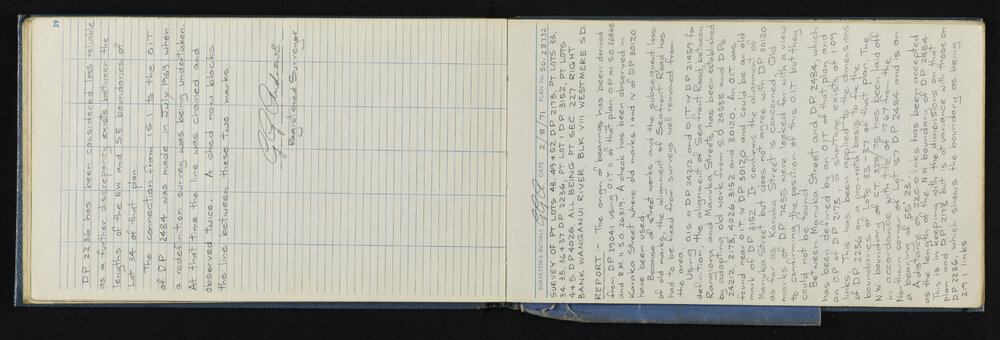 39
DP 2236 has been considered less reliable
as a further discrepancy exists between the
lengths of the NW and SE boundaries of
Lot 34 of that plan.
The connection from IS I to the O.I.T
of DP 2484 was made in July 1969 when
a redefinition survey was being undertaken.
At that time the line was chained and
observed twice. A shed now blocks
the line between these two marks.
Registered Surveyor
SURVEYOR'S INITIALS
DATE 2/8/71
PLAN No. S.O. 28732
SURVEY OF PT LOTS 48, 49 & 52 DP 2173, PT LOTS 33,
34, 35, 36 & 37 DP 2236, PT LOT 1 DP 3152, PT LOTS
4 & 5, DP 4026. ALL BEING PT SEC 227 RIGHT
BANK WANGANUI RIVER, BLK VIII WESTMERE S.D.
REPORT :- The origin of bearings has been derived
from DP 29041 using O.I.T II of that plan, O.P XI S.O. 26868
and R.M II S.O. 26319. A check has been observed in
Karaka Street where old marks I and IV of DP 30120
have been used.
Because of street works and the subsequent loss
of old marks, the alignment of Seafront Road has
had to be fixed from surveys well removed from
the area.
Using O.I.S III DP 24202 and O.I.T IV DP 21459 for
definition, the alignment of Sea front Road between
Rangiora and Manuka Streets has been established
by adopting old work from S.O. 24538 and DP
2421, 2173, 4026, 3152 and 30120. An O.I.T. was
found near O.I.T IV DP 30120 and could be an old
mark of DP 3152. It confirms the alignment of
Manuka Street but does not agree with DP 30120
as far as Karaka Street is concerned. Old
marks of DP 7455 were looked for with a view
to confirming the position of this O.I.T but they
could not be found.
Between Manuka Street and DP 2484, which
has been redefined by using an O.I.T of that plan and
an O.P of DP 2173, a shortage exists of 1.09
links. This has been applied to the dimensions
boundaries of Lots 33-37 of that plan. The
NW boundary of CT 328/75 has been laid off
in accordance with title at 67 from the
Northern corner of Lot 157 DP 2484 and is on
a bearing of
A distance of 2220 links has been accepted
as the length of the NW boundary of DP 2484
This is in keeping with the dimensions on that
plan and DP 2173 but is at variance with those on
DP 2236, which shows the boundary as being
2191 links.